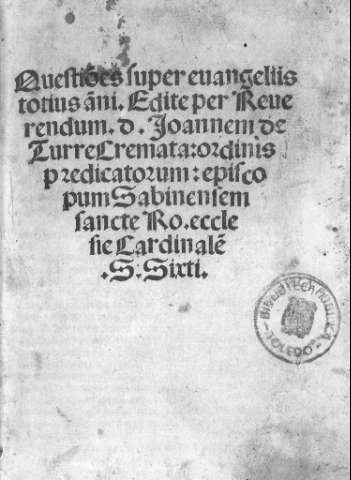 Questiões super euangeliis
totius ãni. Edite per Reue
rendum. d. Joannem de
TurreCremata: ordinis
predicatorum: episco
pum Sabinensem
sancte Ro. eccle
sie Cardinalẽ
.S. Sixti.
BIBLIOTECA PUBLICA - TOLEDO -